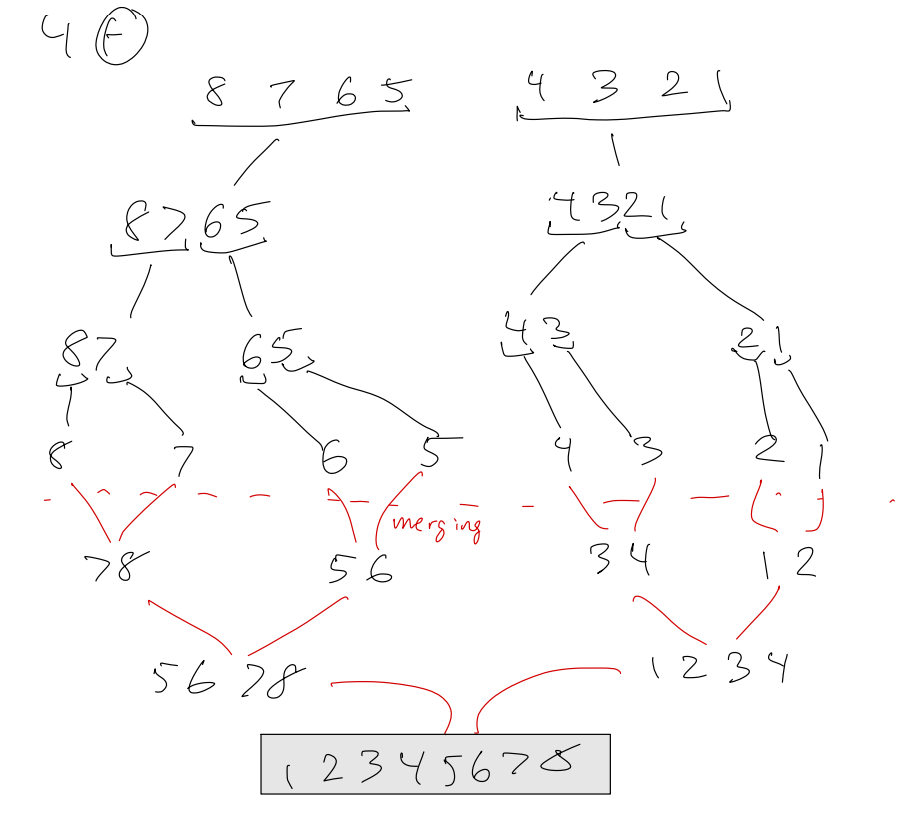 4 f
8 7 6 5 4 3 2 1
87 65 43 21
87 65 43 21
8 7 6 5 4 3 2 1
merging
78 56 34 12
56 78 1234
1 2 3 4 5 6 7 8